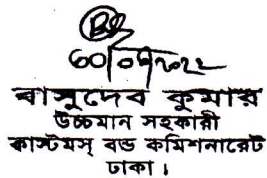 ৩০/০৫/২০২২
বাসুদেব কুমার
উচ্চমান সহকারী
কাস্টমস্ বন্ড কমিশনারেট
ঢাকা।